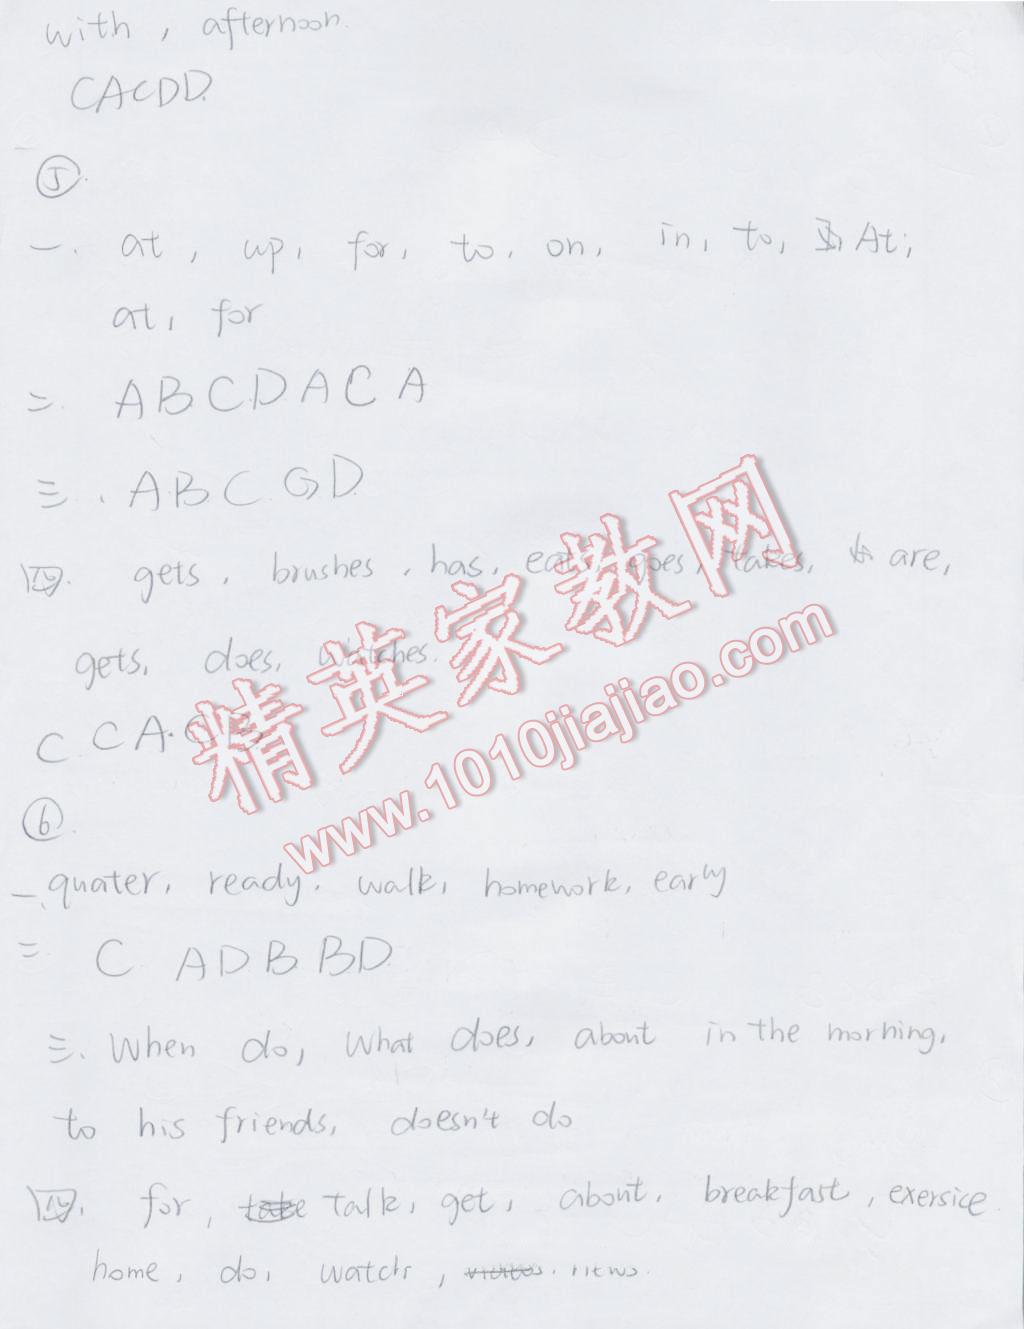 with, afternoon.
CACDD.
⑤.
一. at, up, for, to, on, in, to, At,
at, for
二. ABCDACA
三. ABCGD
四. gets, brushes, has, eats, goes, takes, are,
gets, does, watches.
C CA.
⑥.
一. quater, ready, walk, homework, early
二 C ADBBD
三. When do, What does, about in the morning,
to his friends, doesn't do
四. for, talk, get, about, breakfast, exersice
home, do, watch, news.
精英家教网
www.1010jiajiao.com